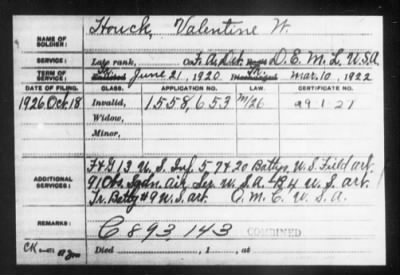 NAME OF SOLDIER: Houck, Valentine W.
SERVICE: Late rank, F.A. Det. D.E.M.L. U.S.A.
TERM OF SERVICE: Enlisted June 21, 1920 Discharged Mar. 10, 1922
DATE OF FILING. CLASS. APPLICATION NO. LAW. CERTIFICATE NO.
1926 Oct 18 Invalid, 1558,653 m/26
Widow,
Minor,
F & G 13 U.S. Inf. 5 7 & 20 Battys U.S. Field art.
ADDITIONAL SERVICES: 91 Obs. Sqdn. Air Ser U.S.A. U.S. art.
Tr. Batty #9 U.S. art. Q.M.C. U.S.A.
REMARKS: C 893,143 COMBINED
Died , 1 , at